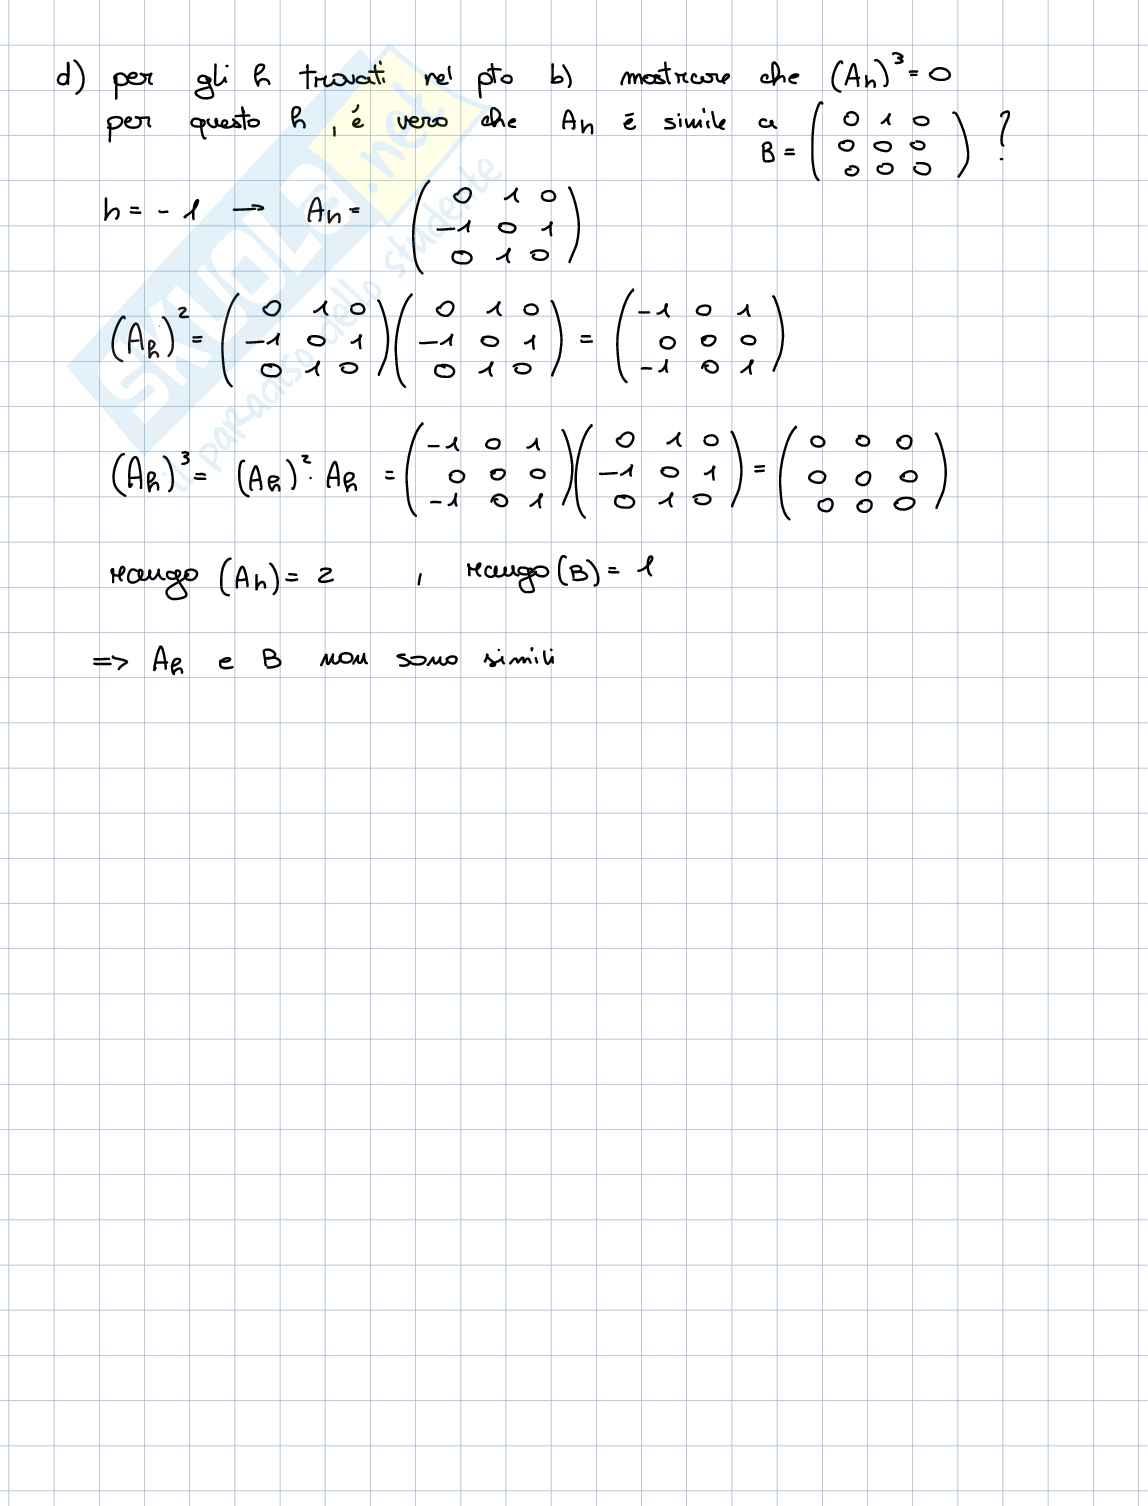 d) per gli h trovati nel pto b) mostrare che (Ah)³ = 0
per questo h, é vero che Ah é simile a B = ( 0 1 0 ; 0 0 0 ; 0 0 0 ) ?
h = -1 → Ah = ( 0 1 0 ; -1 0 1 ; 0 1 0 )
(Ah)² = ( 0 1 0 ; -1 0 1 ; 0 1 0 ) ( 0 1 0 ; -1 0 1 ; 0 1 0 ) = ( -1 0 1 ; 0 0 0 ; -1 0 1 )
(Ah)³ = (Ah)² · Ah = ( -1 0 1 ; 0 0 0 ; -1 0 1 ) ( 0 1 0 ; -1 0 1 ; 0 1 0 ) = ( 0 0 0 ; 0 0 0 ; 0 0 0 )
rango (Ah) = 2 , rango (B) = 1
=> Ah e B non sono simili
SKUOLA.net
il paradiso dello studente